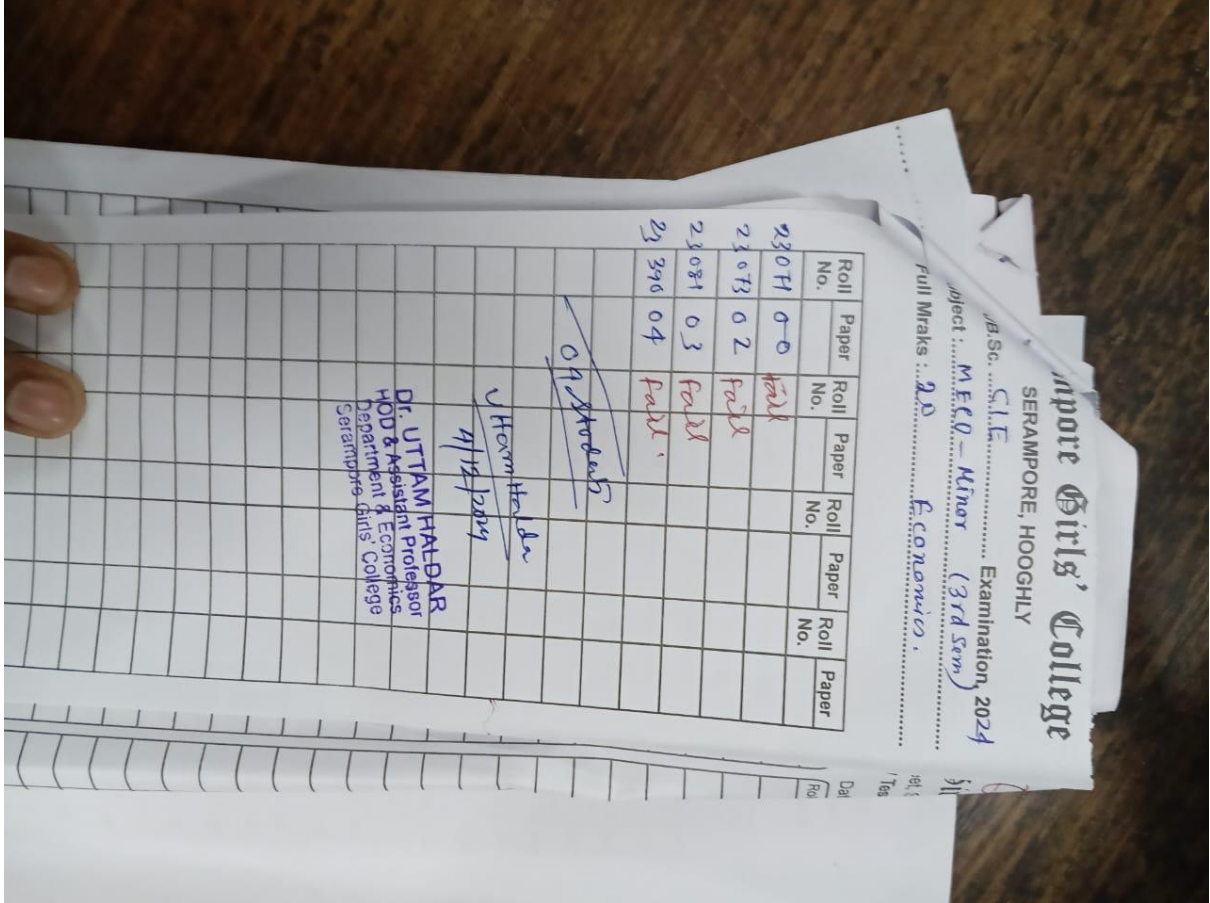 mpore Girls' College
SERAMPORE, HOOGHLY
/B.Sc. ..... C.I.E. ..... Examination, 2024
bject : MECO - Minor (3rd Sem)
Full Mraks : 20 Economics.
Roll No. Paper Roll No. Paper Roll No. Paper Roll No. Paper
00 fail
23073 02 fail
03 fail
23390 04 fail.
04 Students
4/12/2024
Dr. UTTAM HALDAR
HOD & Assistant Professor
Department & Economics
Serampore Girls' College
Dat
Rol
Tes